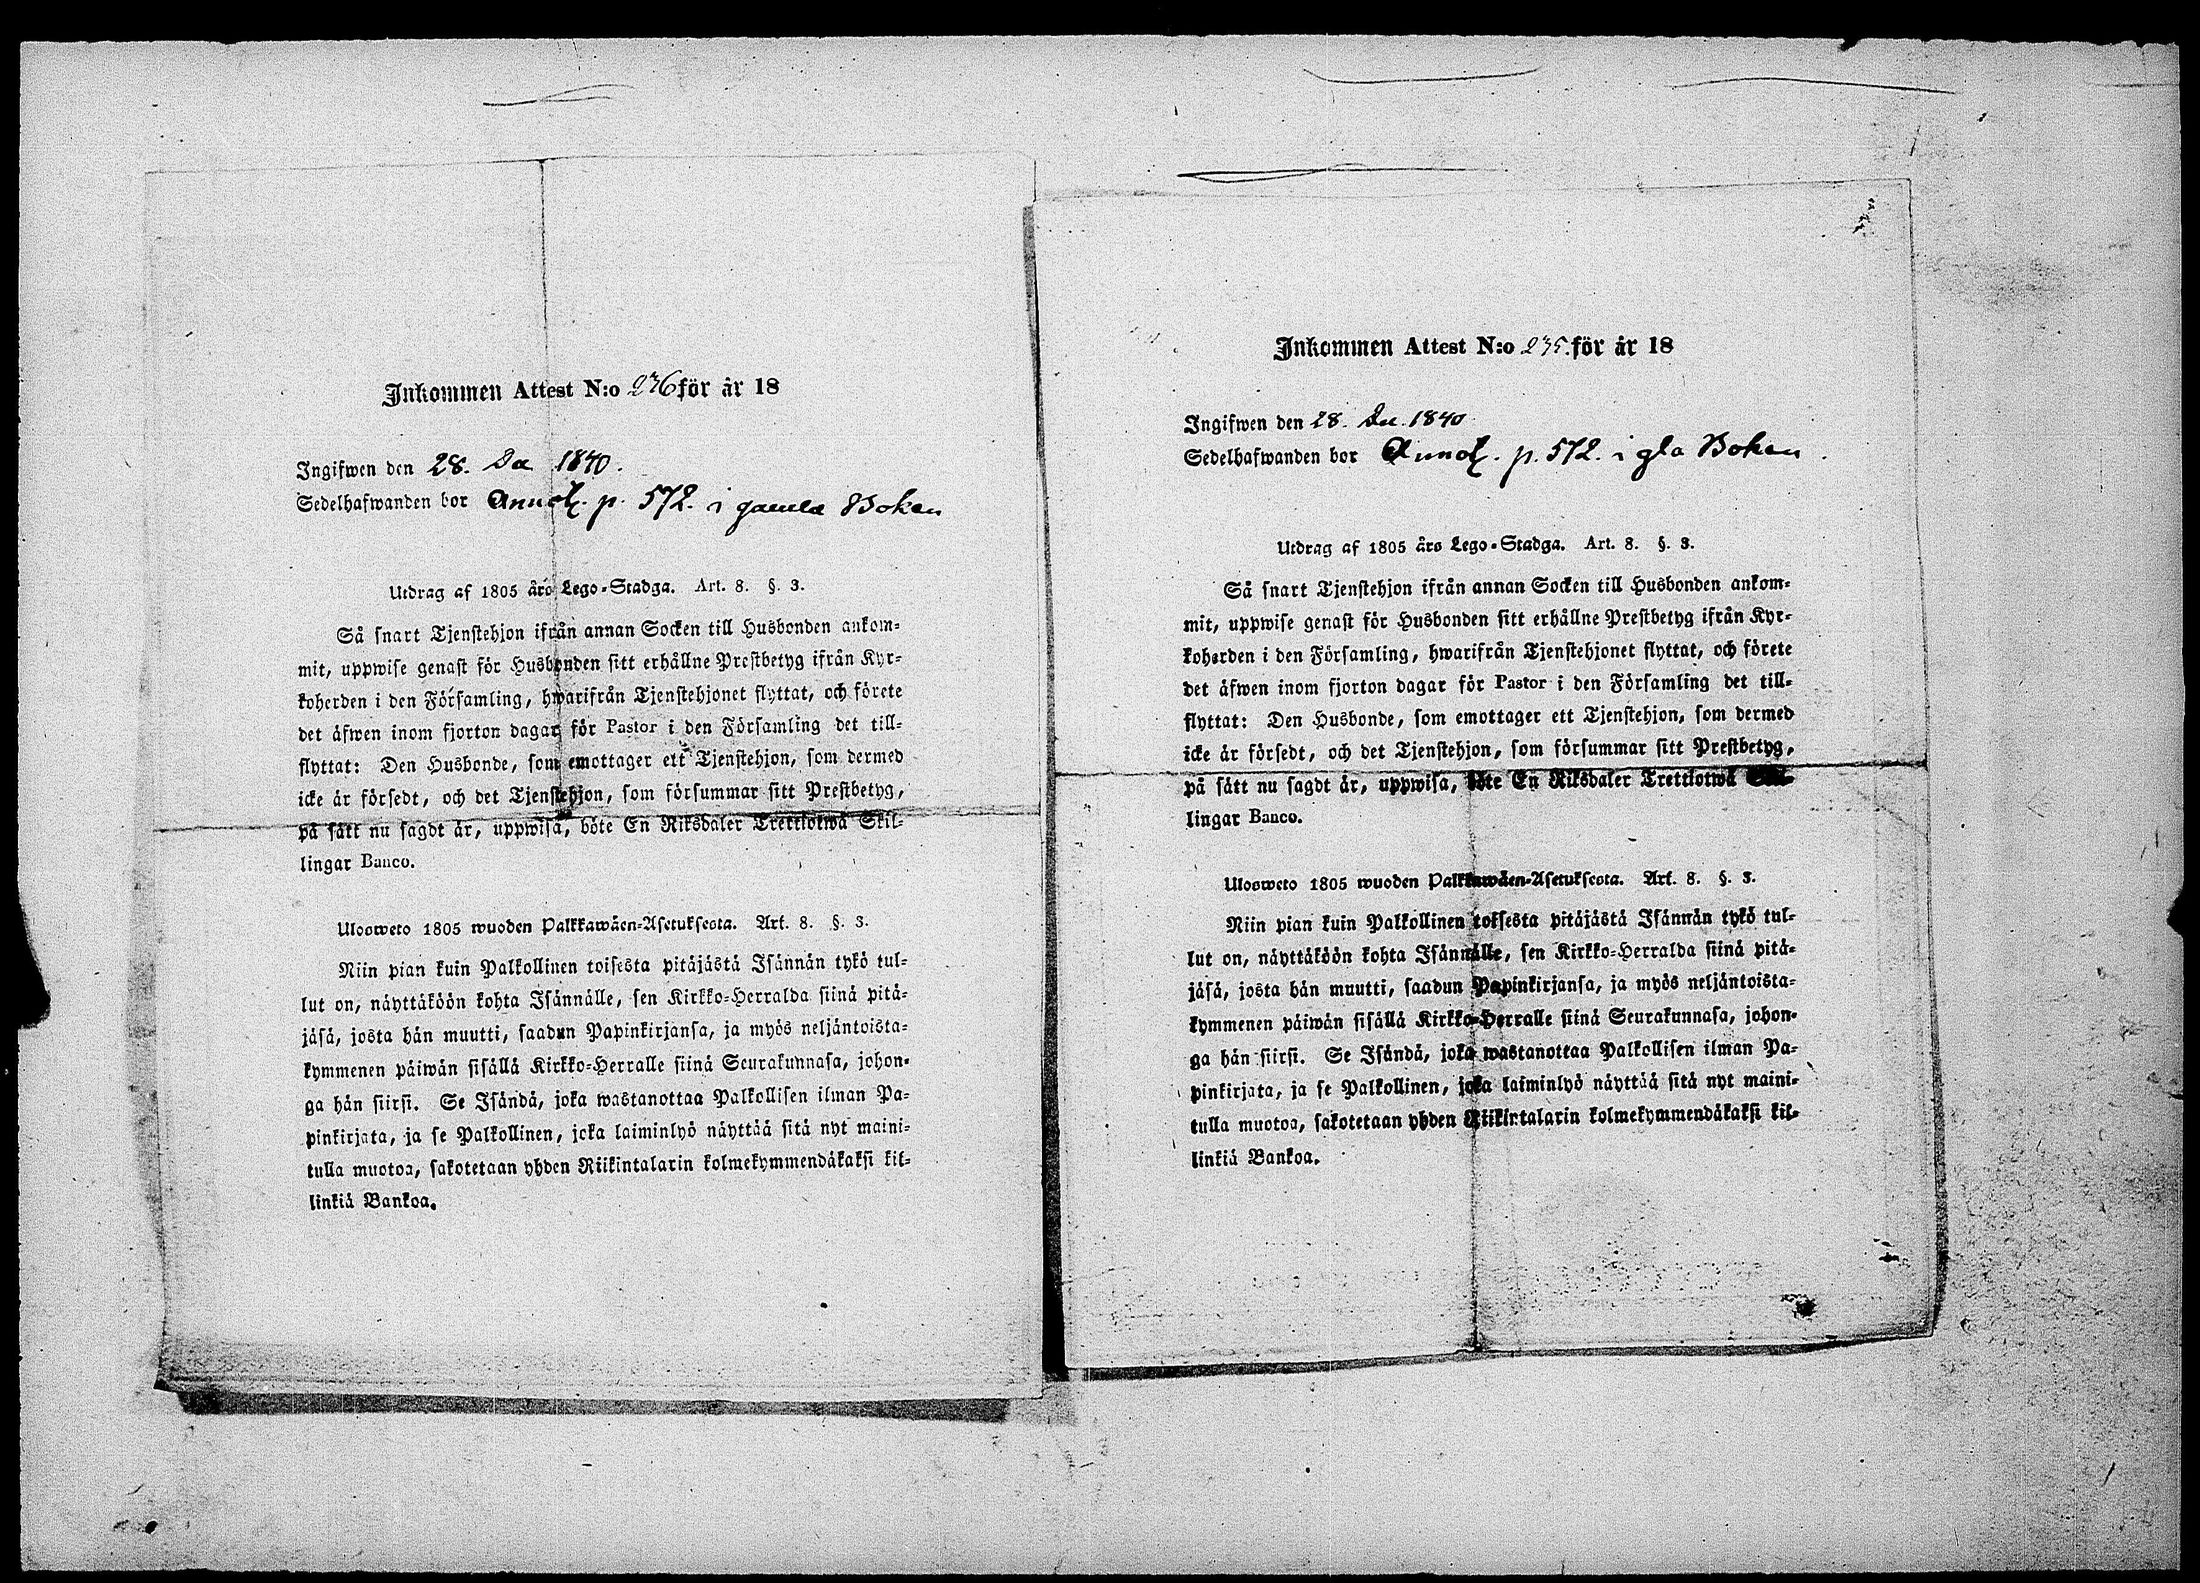 Inkommen Attest N:o 236 för år 18
Ingifwen den 28. Dec 1840.
Sedelhafwanden bor Annot. p. 572. i gamla Boken
Utdrag af 1805 års Lego-Stadga. Art. 8. §. 3.
Så snart Tjenstehjon ifrån annan Socken till Husbonden ankom-
mit, uppwise genast för Husbonden sitt erhållne Prestbetyg ifrån Kyr-
koherden i den Församling, hwarifrån Tjenstehjonet flyttat, och förete
det äfwen inom fjorton dagar för Pastor i den Församling det till-
flyttat: Den Husbonde, som emottager ett Tjenstehjon, som dermed
icke är försedt, och det Tjenstehjon, som försummar sitt Prestbetyg,
på sätt nu sagdt är, uppwisa, böte En Riksdaler Trettiotwå Skil-
lingar Banco.
Ulosweto 1805 wuoden Palkkawäen-Asetuksesta. Art. 8. §. 3.
Niin pian kuin Palkollinen toisesta pitäjästä Isännän tykö tul-
lut on, näyttäköön kohta Isännälle, sen Kirkko-Herralda siinä pitä-
jäsä, josta hän muutti, saadun Papinkirjansa, ja myös neljäntoista-
kymmenen päiwän sisällä Kirkko-Herralle siinä Seurakunnasa, johon-
ga hän siirsi. Se Isändä, joka wastanottaa Palkollisen ilman Pa-
pinkirjata, ja se Palkollinen, joka laiminlyö näyttää sitä nyt maini-
tulla muotoa, sakotetaan yhden Riikintalarin kolmekymmendäkaksi kil-
linkiä Bankoa.
Inkommen Attest N:o 235. för år 18
Ingifwen den 28. Dec. 1840
Sedelhafwanden bor Annot. p. 572. i gla Boken.
Utdrag af 1805 års Lego-Stadga. Art. 8. §. 3.
Så snart Tjenstehjon ifrån annan Socken till Husbonden ankom-
mit, uppwise genast för Husbonden sitt erhållne Prestbetyg ifrån Kyr-
koherden i den Församling, hwarifrån Tjenstehjonet flyttat, och förete
det äfwen inom fjorton dagar för Pastor i den Församling det till-
flyttat: Den Husbonde, som emottager ett Tjenstehjon, som dermed
icke är försedt, och det Tjenstehjon, som försummar sitt Prestbetyg,
på sätt nu sagdt är, uppwisa, böte En Riksdaler Trettiotwå Skil-
lingar Banco.
Ulosweto 1805 wuoden Palkkawäen-Asetuksesta. Art. 8. §. 3.
Niin pian kuin Palkollinen toisesta pitäjästä Isännän tykö tul-
lut on, näyttäköön kohta Isännälle, sen Kirkko-Herralda siinä pitä-
jäsä, josta hän muutti, saadun Papinkirjansa, ja myös neljäntoista-
kymmenen päiwän sisällä Kirkko-Herralle siinä Seurakunnasa, johon-
ga hän siirsi. Se Isändä, joka wastanottaa Palkollisen ilman Pa-
pinkirjata, ja se Palkollinen, joka laiminlyö näyttää sitä nyt maini-
tulla muotoa, sakotetaan yhden Riikintalarin kolmekymmendäkaksi kil-
linkiä Bankoa.